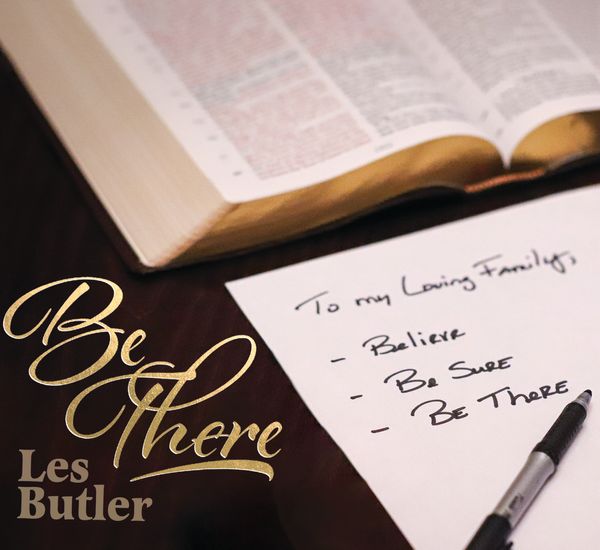 To my Loving Family,
- Believe
- Be Sure
- Be There
Be
There
Les
Butler